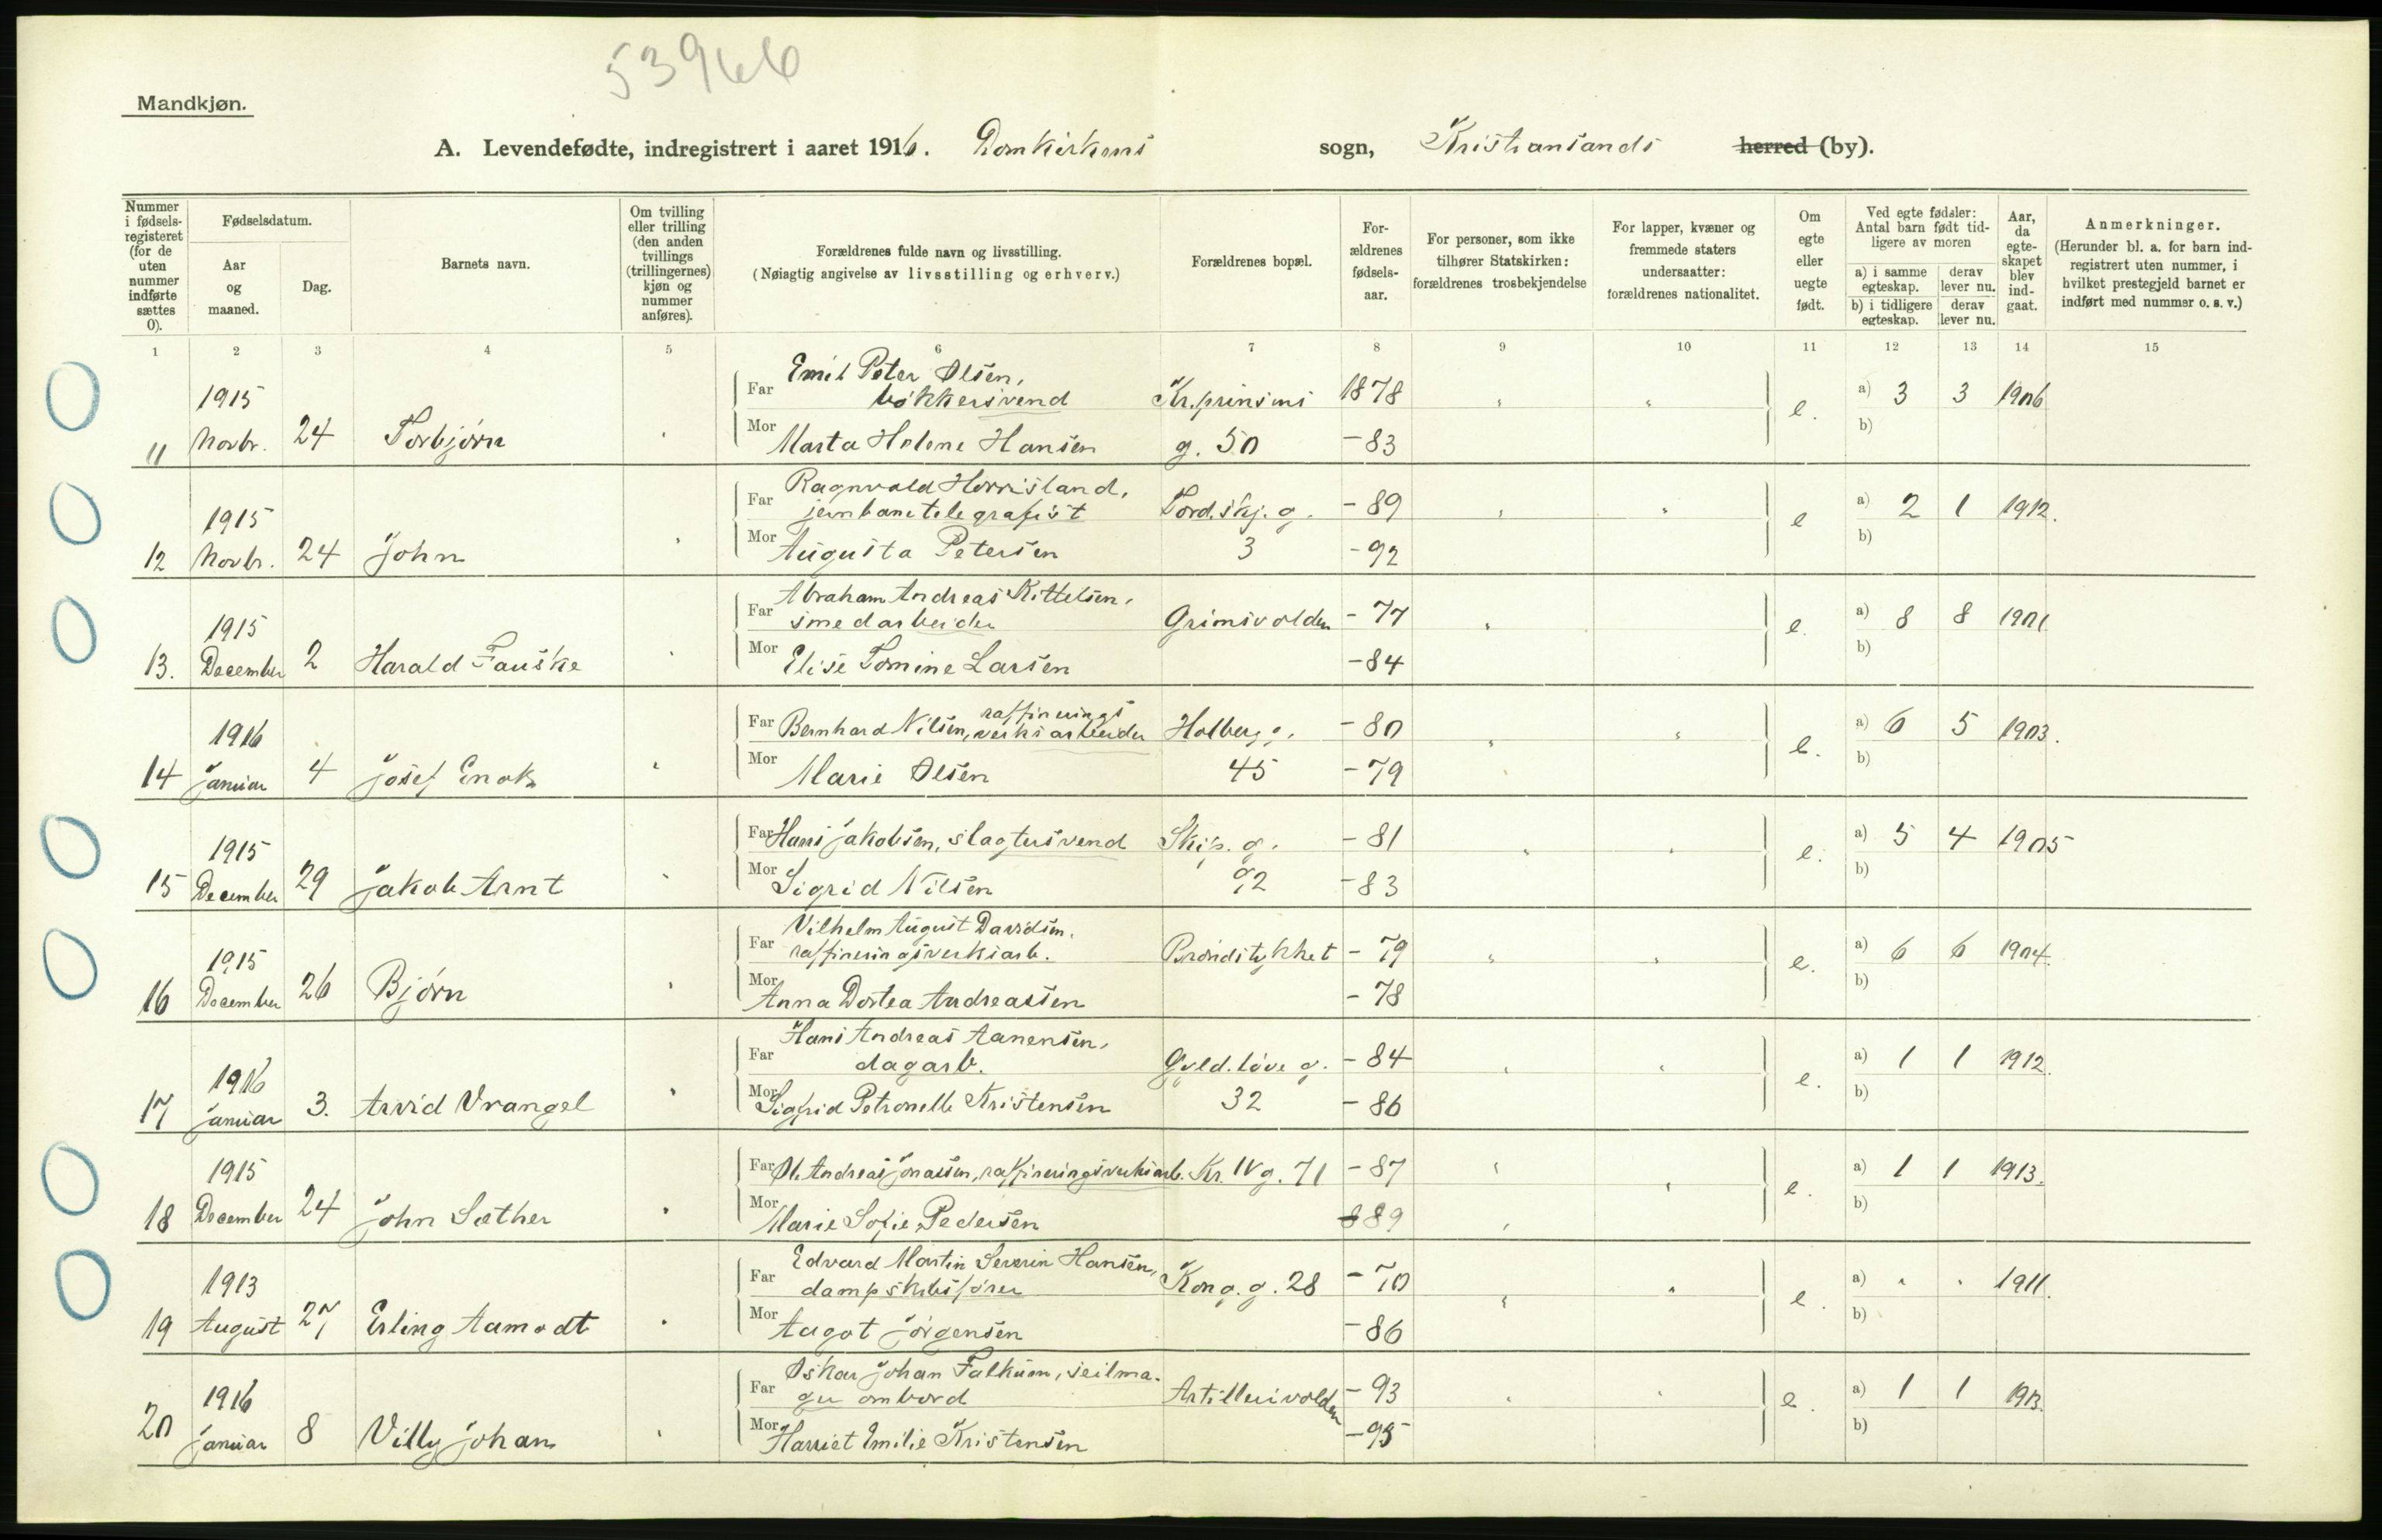 53966
Mandkjøn.
A. Levendefødte, indregistrert i aaret 1916. Domkirkens sogn, Kristiansands herred (by).
Nummer i fødselsregisteret (for de uten nummer indførte sættes 0).
Fødselsdatum.
Aar og maaned.
Dag.
Barnets navn.
Om tvilling eller trilling (den anden tvillings (trillingernes) kjøn og nummer anføres).
Forældrenes fulde navn og livsstilling.
(Nøiagtig angivelse av livsstilling og erhverv.)
Forældrenes bopæl.
Forældrenes fødselsaar.
For personer, som ikke tilhører Statskirken: forældrenes trosbekjendelse
For lapper, kvæner og fremmede staters undersaatter: forældrenes nationalitet.
Om egte eller uegte født.
Ved egte fødsler: Antal barn født tidligere av moren
a) i samme egteskap.
derav lever nu.
b) i tidligere egteskap.
derav lever nu.
Aar, da egteskapet blev indgaat.
Anmerkninger.
(Herunder bl. a. for barn indregistrert uten nummer, i hvilket prestegjeld barnet er indført med nummer o. s. v.)
1 2 3 4 5 6 7 8 9 10 11 12 13 14 15
Emil Peter Olsen,
1915 Far bøkkersvend Kr.prinsens 1878 " " e. a) 3 3 1906
11 Novbr. 24 Torbjørn " Mor Marta Helene Hansen g. 50 -83 b)
Ragnvald Horrisland,
1915 Far jernbanetelegrafist Tord.skj. g. -89 " " e a) 2 1 1912.
12 Novbr. 24 John " Mor Augusta Petersen 3 -92 b)
Abraham Andreas Kittelsen,
1915 Far smedarbeider Grimsvolden -77 " e. a) 8 8 1901
13. December 2 Harald Fauske " Mor Elise Tomine Larsen -84 b)
raffinerings
1916 Far Bernhard Nilsen, verksarbeider Holberg g. -80 " " e. a) 6 5 1903.
14 Januar 4 Josef Enok " Mor Marie Olsen 45 -79 b)
1915 Far Hans Jakobsen, slagtersvend Skip. g. -81 " " e. a) 5 4 1905
15 December 29 Jakob Arnt " Mor Sigrid Nilsen 92 -83 b)
Vilhelm August Davidsen,
1915 Far raffineringsverksarb. Brøndstykket -79 " " e. a) 6 6 1904.
16 December 26 Bjørn " Mor Anna Dortea Andreassen -78 b)
Hans Andreas Aanensen,
1916 Far dagarb. Gyld.løve g. -84 " " e. a) 1 1 1912.
17 Januar 3. Arvid Vrangel " Mor Sigfrid Petronelle Kristensen 32 -86 b)
1915 Far Ole Andreas Jonassen, raffineringsverksarb. Kr. IV g. 71 -87 " " e. a) 1 1 1913.
18 December 24 John Sæther " Mor Marie Sofie Pedersen 89 b)
Edvard Martin Severin Hansen,
1913 Far dampskibsfører Kong. g. 28 -70 " " e. a) " " 1911.
19 August 27 Erling Aamodt " Mor Aagot Jörgensen -86 b)
Oskar Johan Falkum, seilma-
1916 Far ger ombord Artillerivolden -93 " " e. a) 1 1 1913.
20 Januar 8 Villy Johan " Mor Harriet Emilie Kristensen -95 b)